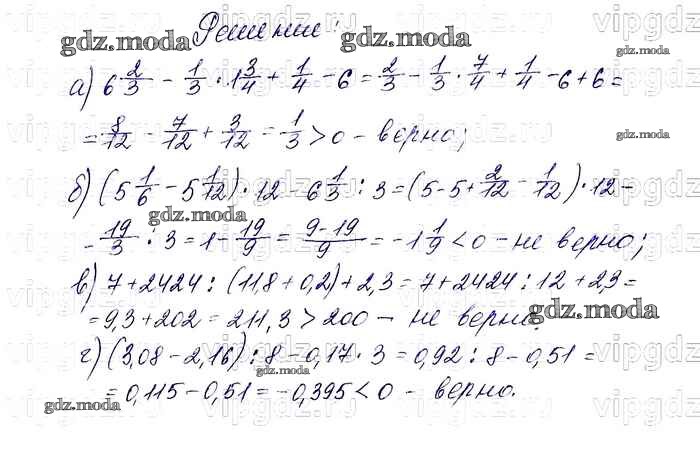 Решение:
а) 6 2/3 - 1/3 · 1 3/4 + 1/4 - 6 = 2/3 - 1/3 · 7/4 + 1/4 - 6 + 6 =
= 8/12 - 7/12 + 3/12 = 1/3 > 0 - верно;
б) (5 1/6 - 5 1/12) · 12 - 6 1/3 : 3 = (5 - 5 + 2/12 - 1/12) · 12 -
- 19/3 : 3 = 1 - 19/9 = (9 - 19)/9 = -1 1/9 < 0 - не верно;
в) 7 + 2424 : (11,8 + 0,2) + 2,3 = 7 + 2424 : 12 + 2,3 =
= 9,3 + 202 = 211,3 > 200 - не верно.
г) (3,08 - 2,16) : 8 - 0,17 · 3 = 0,92 : 8 - 0,51 =
= 0,115 - 0,51 = -0,395 < 0 - верно.
gdz.moda
gdz.moda
gdz.moda
gdz.moda
gdz.moda
gdz.moda
gdz.moda
gdz.moda
vipgdz
vipgdz
vipgdz
vipgdz